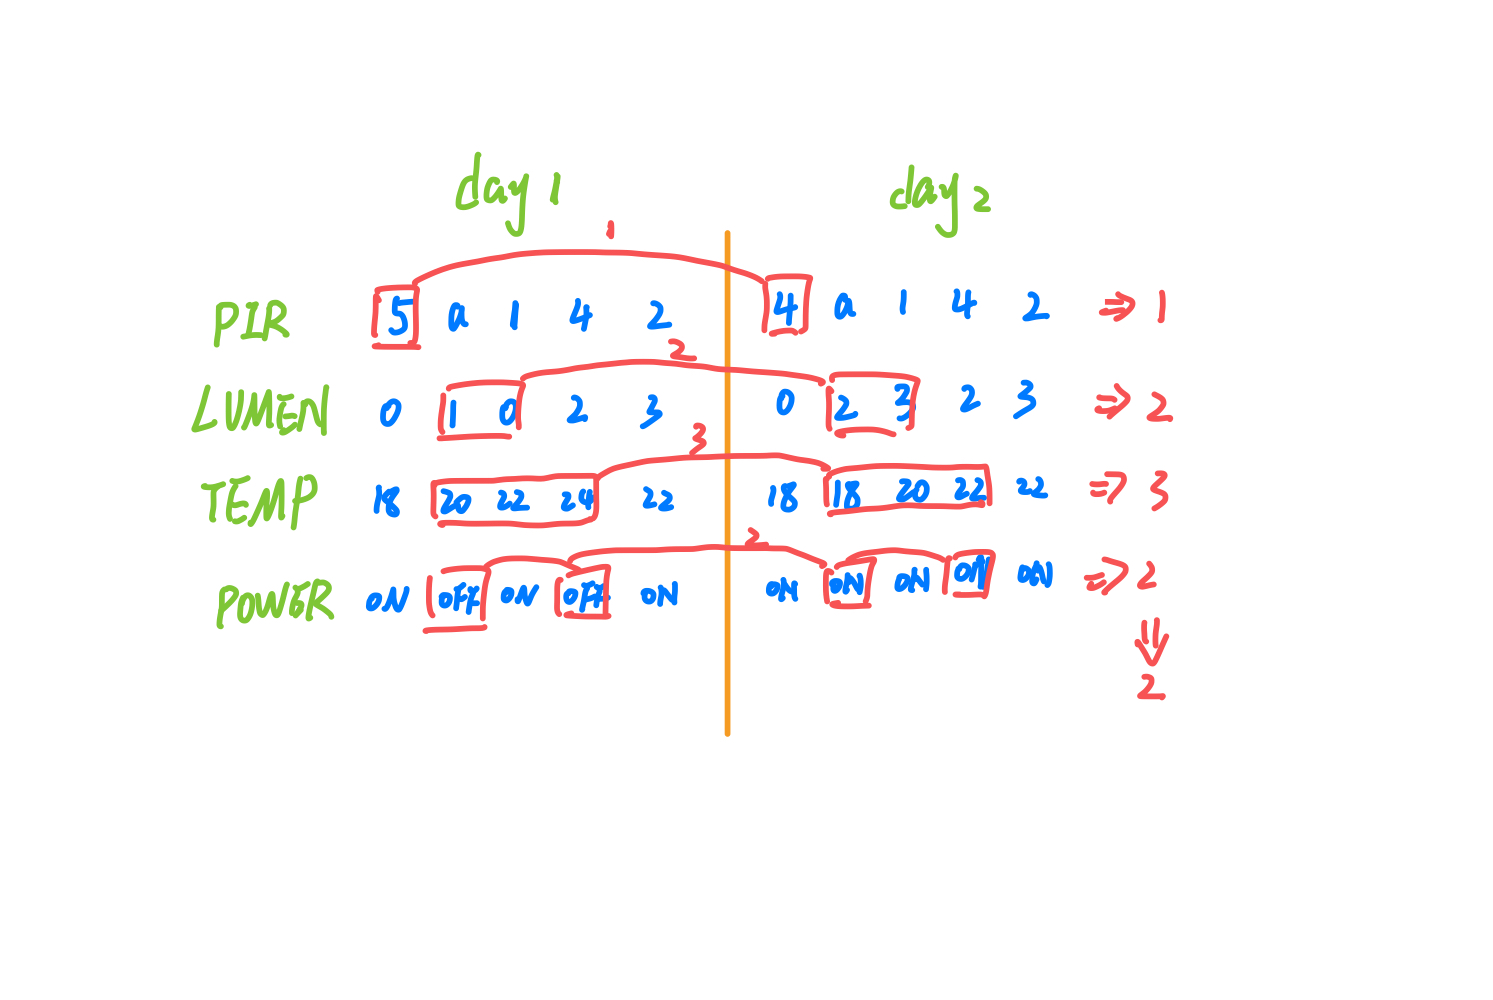 day 1 day 2
1
PIR 5 a 1 4 2 4 a 1 4 2 => 1
2
LUMEN 0 1 0 2 3 0 2 3 2 3 => 2
3
TEMP 18 20 22 24 22 18 18 20 22 22 => 3
2
POWER ON OFF ON OFF ON ON ON ON ON ON => 2
2